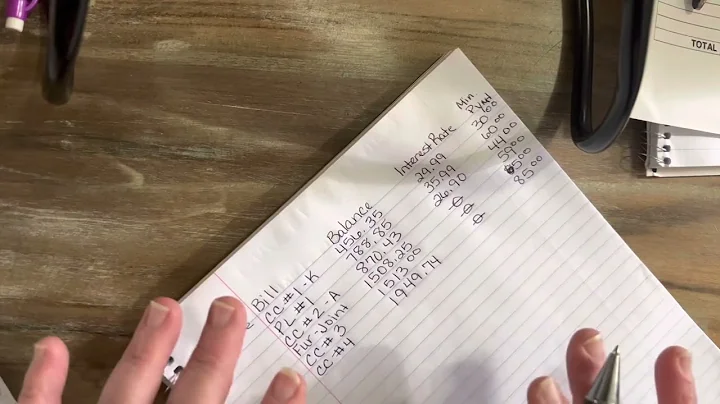 Bill Balance Interest Rate Min Pymt
CC #1-K 456.35 29.99 30.00
PL #1 788.85 35.99 60.00
CC #2-A 870.43 26.90 44.00
Fur-Joint 1508.25 Ø 59.00
CC #3 1513.00 Ø
CC #4 1949.74 Ø 85.00
TOTAL